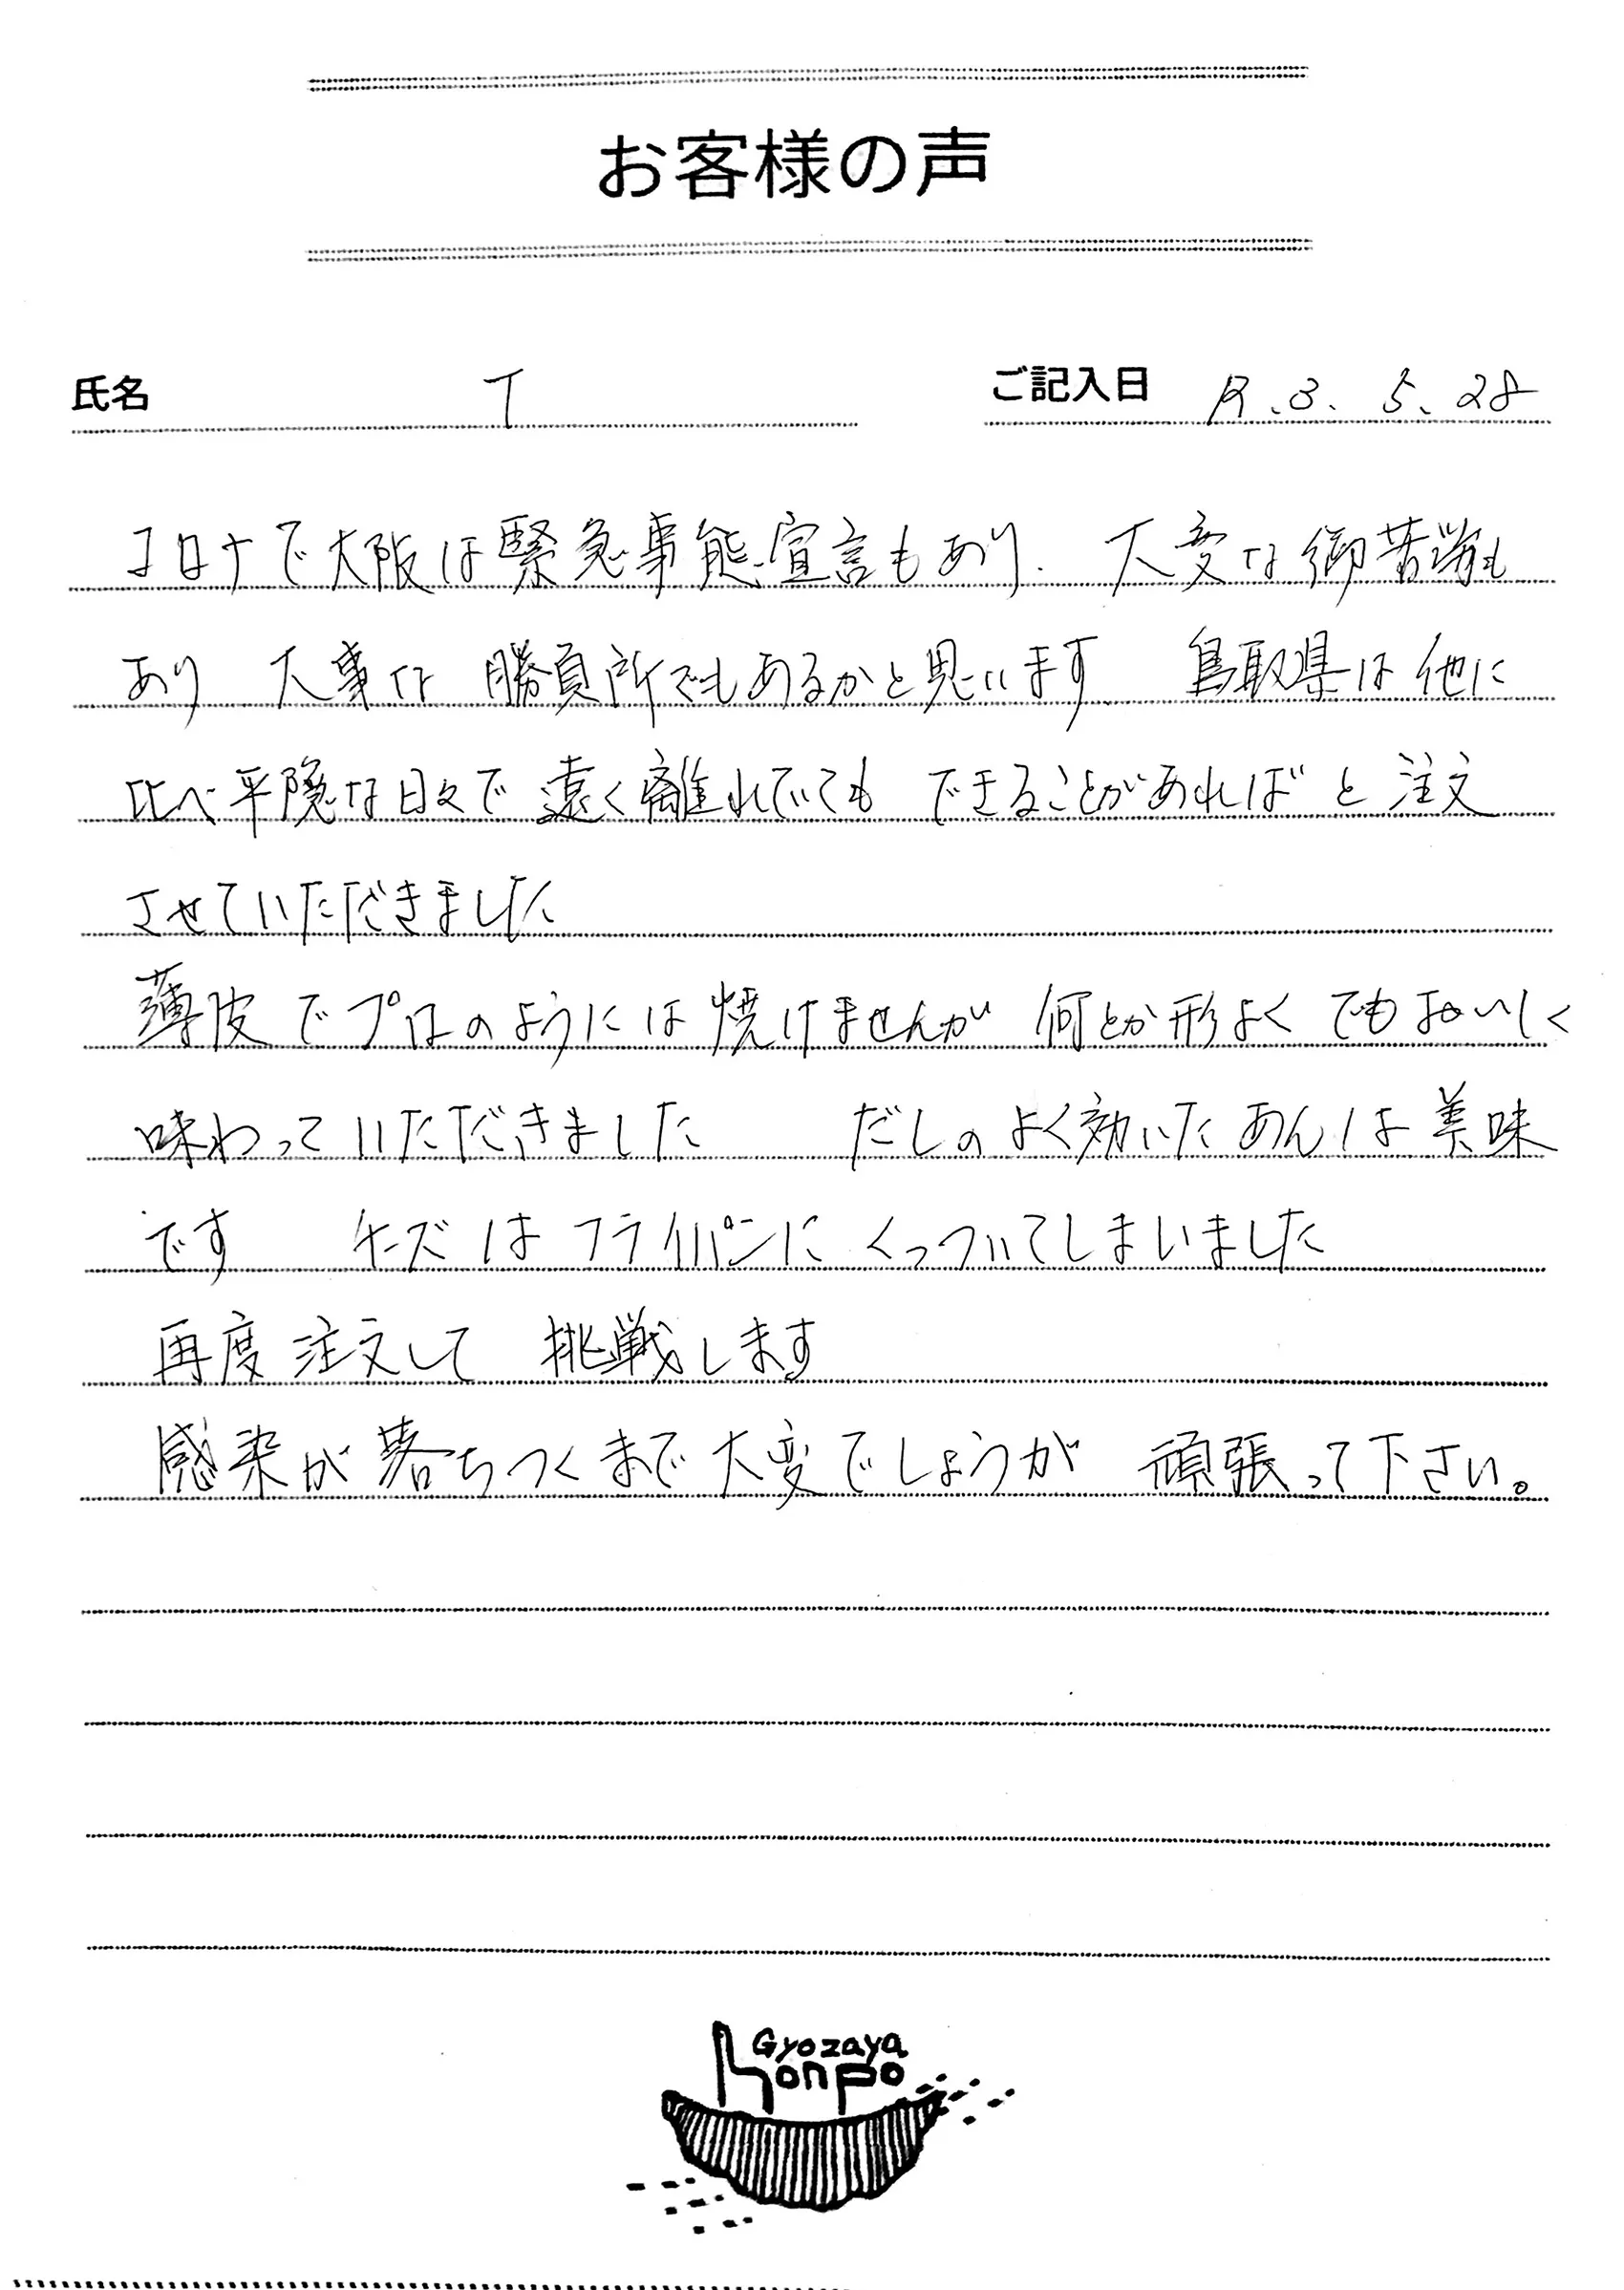 お客様の声
氏名 T ご記入日 R.3.5.28
コロナで大阪は緊急事態宣言もあり、大変な御苦労も
あり 大事な 勝負所でもあるかと思います 鳥取県は他に
比べ平穏な日々で遠く離れていても できることがあればと注文
させていただきました
薄皮でプロのようには焼けませんが 何とか形よく でもおいしく
味わっていただきました だしのよく効いたあんは美味
です チーズはフライパンにくっついてしまいました
再度注文して 挑戦します
感染が落ちつくまで大変でしょうが 頑張って下さい。
Gyozaya
honpo